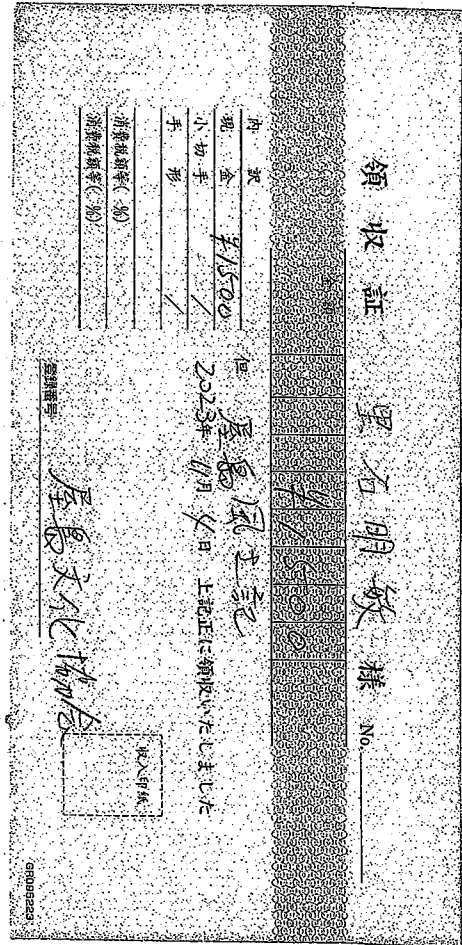 領収証
黒石明敏 様 No.
金額 ¥1500
但 屋島風土記
2023年 11月 4日 上記正に領収いたしました
内訳
現金 ¥1500
小切手 /
手形 /
消費税額等( %)
消費税額等( %)
登録番号
屋島文化協会
収入印紙